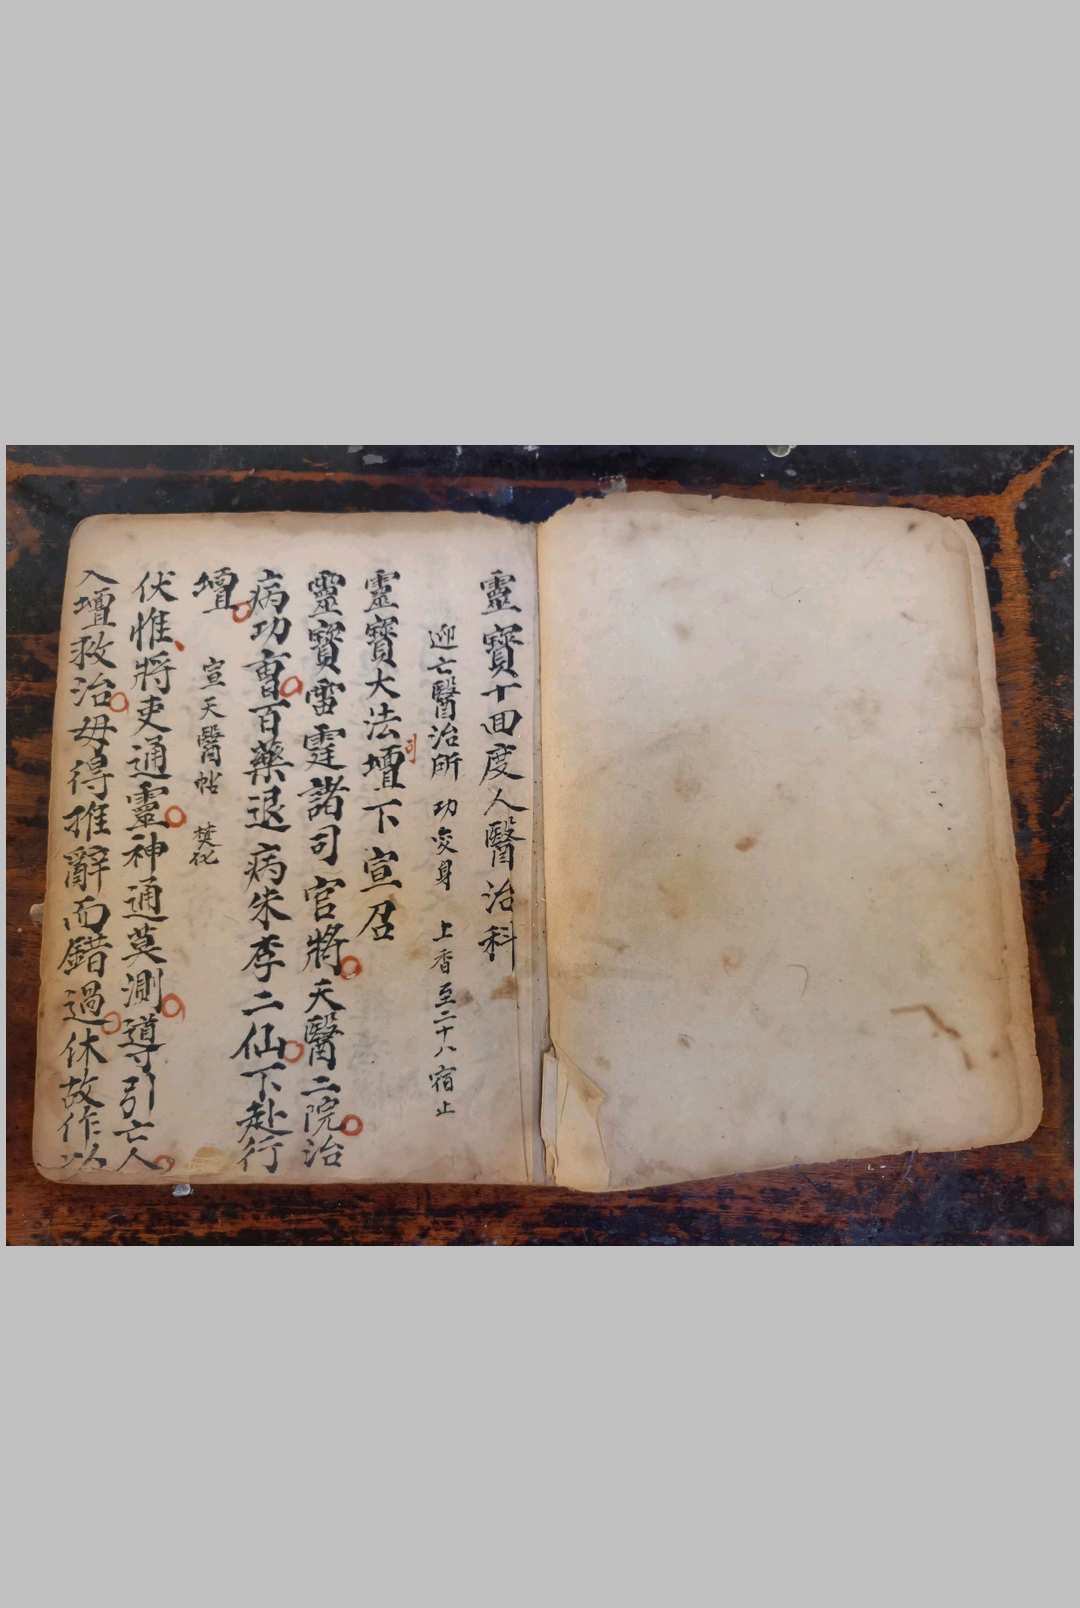 靈寳十回度人醫治科
迎亡醫治所 功変身 上香至二十八宿止
靈寳大法壇下宣召
司
靈寳雷霆諸司官將天醫二院治
病功曹百藥退病朱李二仙下赴行
壇 宣天醫帖 焚化
伏惟將吏通靈神通莫測導引亡人
入壇救治毋得推辭而錯過休故作以